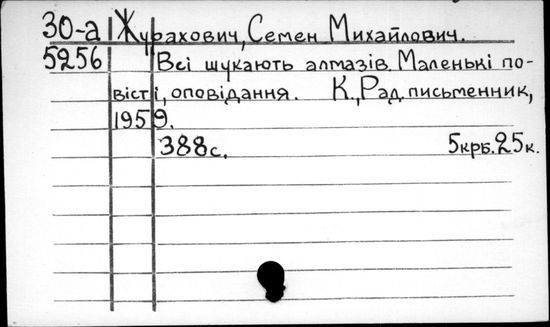 30-а Журахович, Семен Михайлович.
5256 Всі шукають алмазів. Маленькі по-
вісті, оповідання. К., Рад. письменник,
1959.
388 с. 5 крб. 25 к.